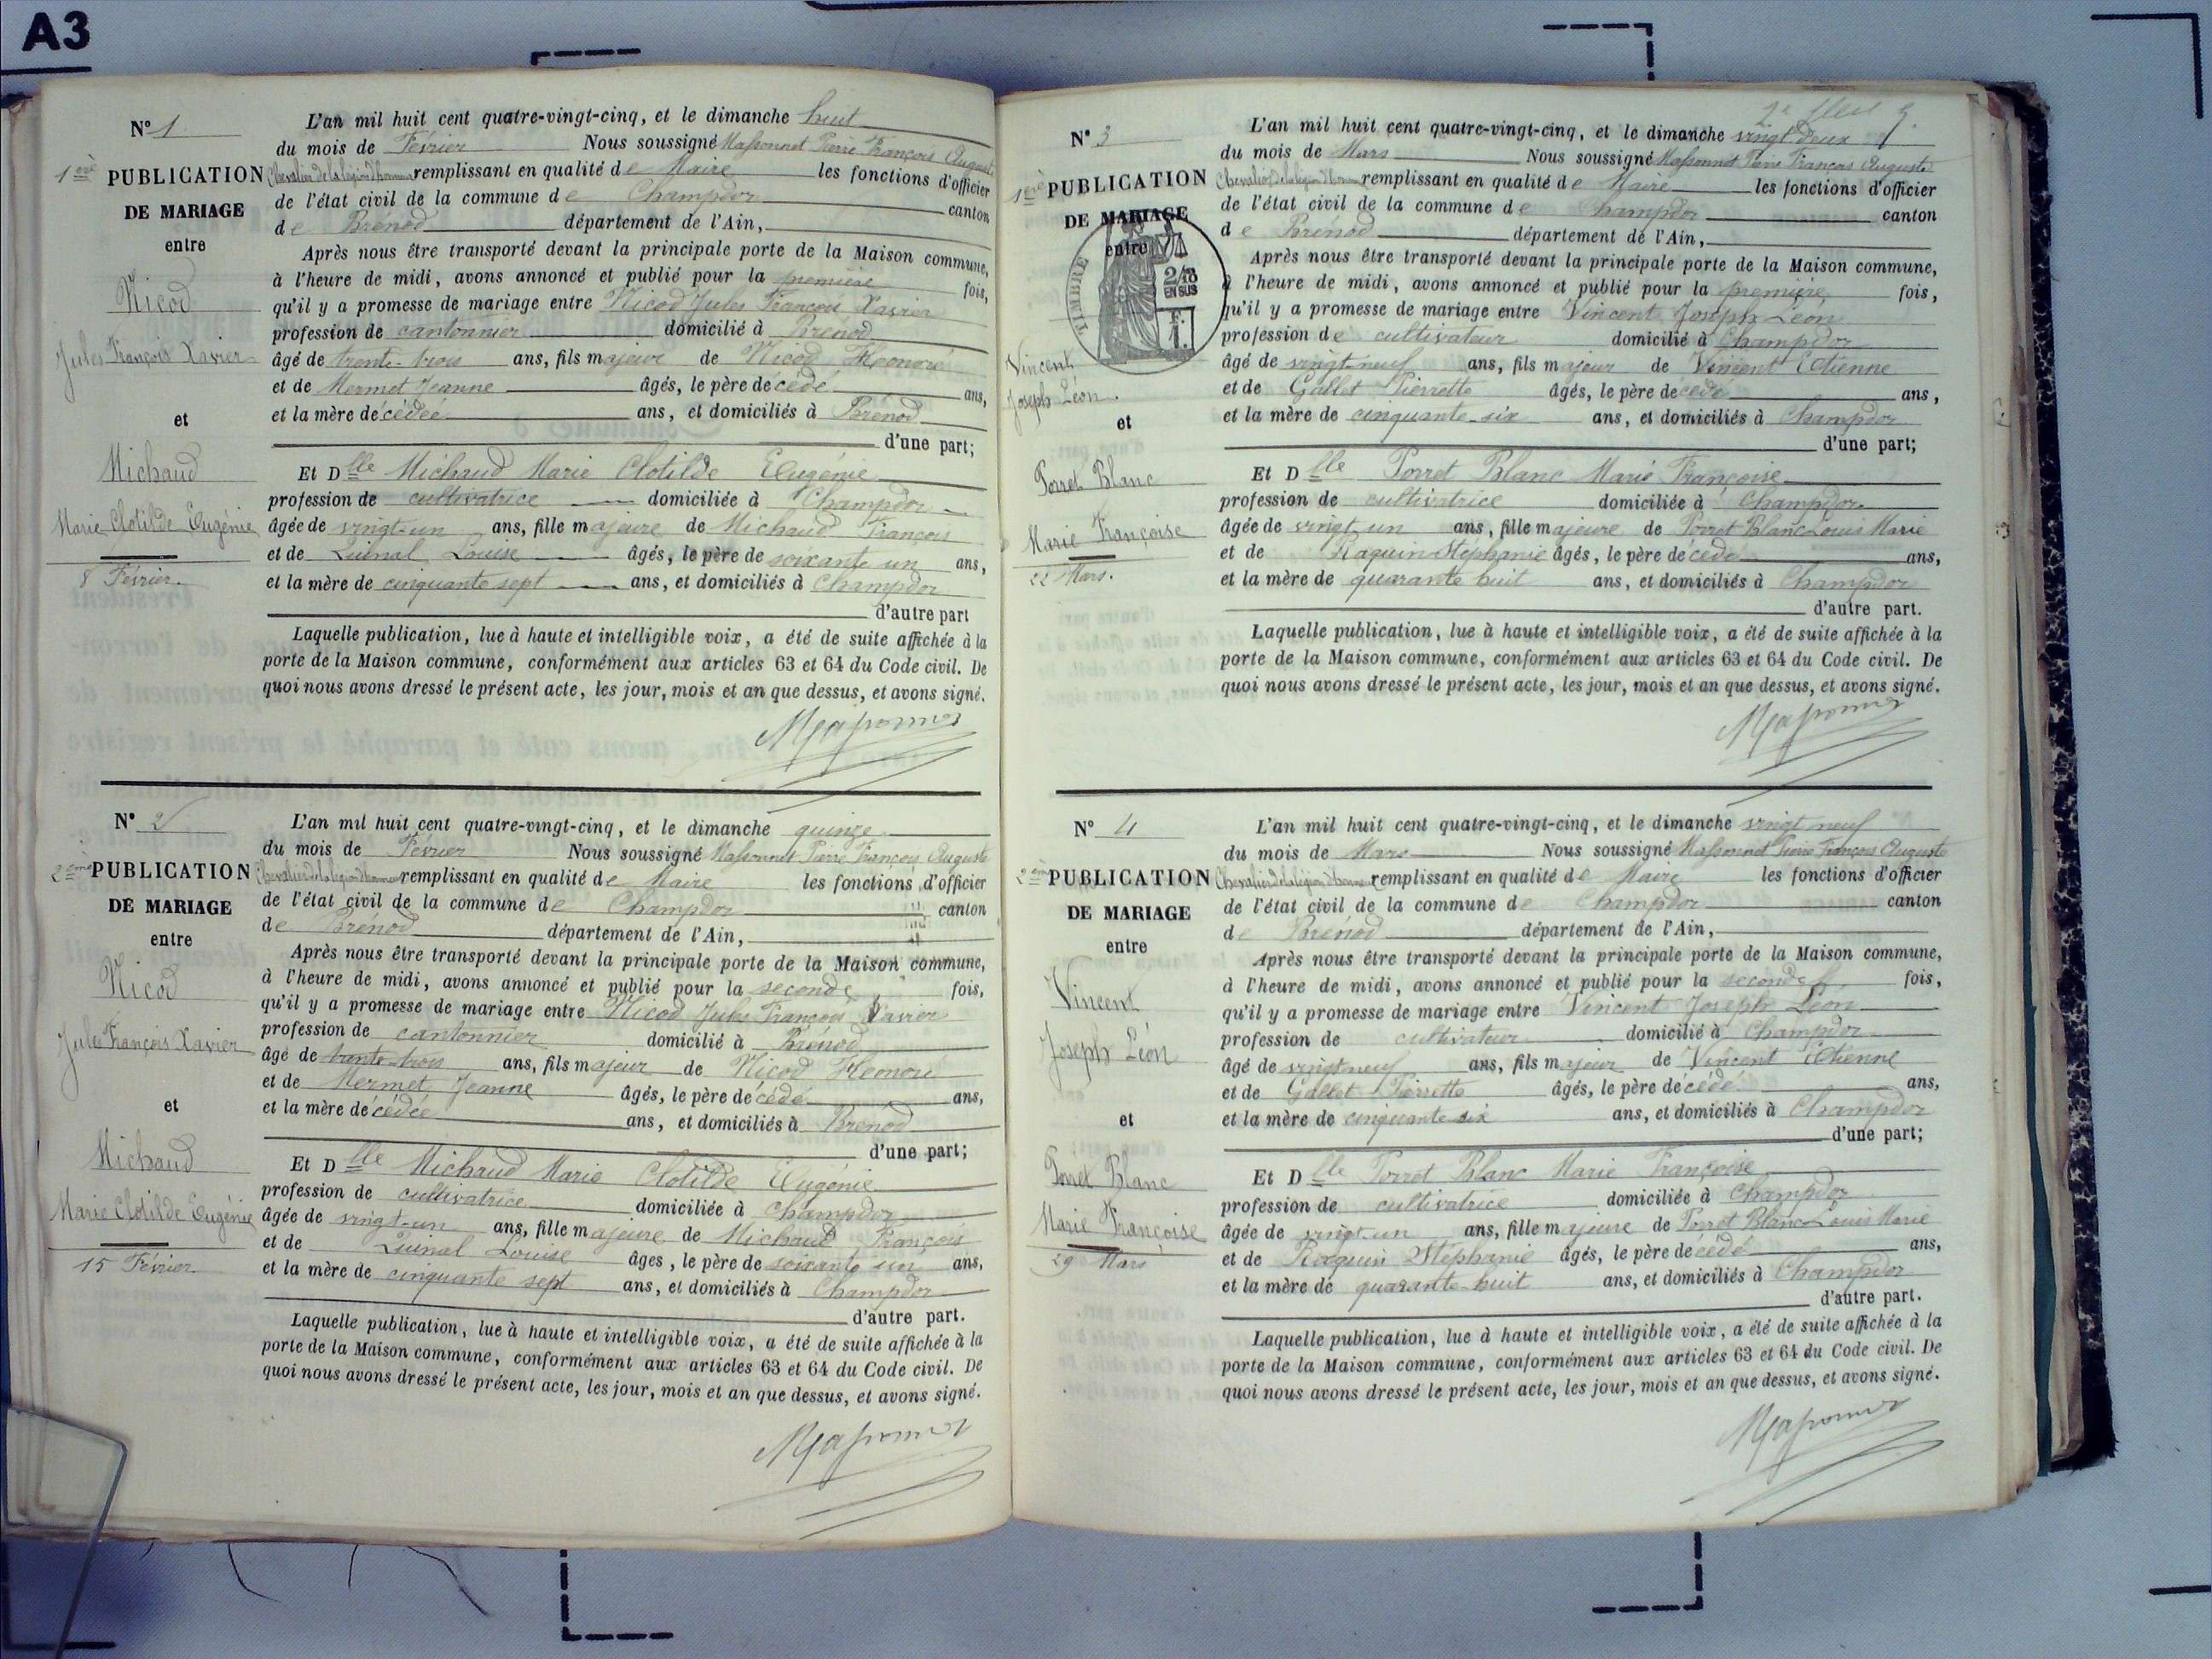 A3
N° 1
1ère PUBLICATION
DE MARIAGE
entre
Nicod
Jules François Xavier
et
Michaud
Marie Clotilde Eugénie
8 Février.
L'an mil huit cent quatre-vingt-cinq, et le dimanche huit
du mois de Février Nous soussigné Massonnet Pierre François Auguste
Chevalier de la légion d'honneur remplissant en qualité de Maire les fonctions d'officier
de l'état civil de la commune de Champdor canton
de Brénod département de l'Ain,
Après nous être transporté devant la principale porte de la Maison commune,
à l'heure de midi, avons annoncé et publié pour la première fois,
qu'il y a promesse de mariage entre Nicod Jules François Xavier
profession de cantonnier domicilié à Brénod
âgé de trente-trois ans, fils majeur de Nicod Honoré
et de Mermet Jeanne âgés, le père décédé ans,
et la mère décédée ans, et domiciliés à Brénod
d'une part;
Et Dlle Michaud Marie Clotilde Eugénie
profession de cultivatrice domiciliée à Champdor
âgée de vingt-un ans, fille majeure de Michaud François
et de Quinal Louise âgés, le père de soixante un ans,
et la mère de cinquante sept ans, et domiciliés à Champdor
d'autre part
Laquelle publication, lue à haute et intelligible voix, a été de suite affichée à la
porte de la Maison commune, conformément aux articles 63 et 64 du Code civil. De
quoi nous avons dressé le présent acte, les jour, mois et an que dessus, et avons signé.
Massonnet
N° 2
2ème PUBLICATION
DE MARIAGE
entre
Nicod
Jules François Xavier
et
Michaud
Marie Clotilde Eugénie
15 Février
L'an mil huit cent quatre-vingt-cinq, et le dimanche quinze
du mois de Février Nous soussigné Massonnet Pierre François Auguste
Chevalier de la légion d'honneur remplissant en qualité de Maire les fonctions d'officier
de l'état civil de la commune de Champdor canton
de Brénod département de l'Ain,
Après nous être transporté devant la principale porte de la Maison commune,
à l'heure de midi, avons annoncé et publié pour la seconde fois,
qu'il y a promesse de mariage entre Nicod Jules François Xavier
profession de cantonnier domicilié à Brénod
âgé de trente-trois ans, fils majeur de Nicod Honoré
et de Mermet Jeanne âgés, le père décédé ans,
et la mère décédée ans, et domiciliés à Brénod
d'une part;
Et Dlle Michaud Marie Clotilde Eugénie
profession de cultivatrice domiciliée à Champdor
âgée de vingt-un ans, fille majeure de Michaud François
et de Quinal Louise âgés, le père de soixante un ans,
et la mère de cinquante sept ans, et domiciliés à Champdor
d'autre part.
Laquelle publication, lue à haute et intelligible voix, a été de suite affichée à la
porte de la Maison commune, conformément aux articles 63 et 64 du Code civil. De
quoi nous avons dressé le présent acte, les jour, mois et an que dessus, et avons signé.
Massonnet
N° 3
1ère PUBLICATION
DE MARIAGE
entre
TIMBRE
2/10
EN SUS
Vincent
Joseph Léon.
et
Porret Blanc
Marie Françoise
22 Mars.
L'an mil huit cent quatre-vingt-cinq, et le dimanche vingt deux
du mois de Mars Nous soussigné Massonnet Pierre François Auguste
Chevalier de la légion d'honneur remplissant en qualité de Maire les fonctions d'officier
de l'état civil de la commune de Champdor canton
de Brénod département de l'Ain,
Après nous être transporté devant la principale porte de la Maison commune,
à l'heure de midi, avons annoncé et publié pour la première fois,
qu'il y a promesse de mariage entre Vincent Joseph Léon
profession de cultivateur domicilié à Champdor
âgé de vingt-neuf ans, fils majeur de Vincent Etienne
et de Gallet Pierrette âgés, le père décédé ans,
et la mère de cinquante-six ans, et domiciliés à Champdor
d'une part;
Et Dlle Porret Blanc Marie Françoise
profession de cultivatrice domiciliée à Champdor
âgée de vingt un ans, fille majeure de Porret Blanc Louis Marie
et de Raquin Stéphanie âgés, le père décédé ans,
et la mère de quarante huit ans, et domiciliés à Champdor
d'autre part.
Laquelle publication, lue à haute et intelligible voix, a été de suite affichée à la
porte de la Maison commune, conformément aux articles 63 et 64 du Code civil. De
quoi nous avons dressé le présent acte, les jour, mois et an que dessus, et avons signé.
Massonnet
N° 4
2ème PUBLICATION
DE MARIAGE
entre
Vincent
Joseph Léon
et
Porret Blanc
Marie Françoise
29 Mars
L'an mil huit cent quatre-vingt-cinq, et le dimanche vingt neuf
du mois de Mars Nous soussigné Massonnet Pierre François Auguste
Chevalier de la légion d'honneur remplissant en qualité de Maire les fonctions d'officier
de l'état civil de la commune de Champdor canton
de Brénod département de l'Ain,
Après nous être transporté devant la principale porte de la Maison commune,
à l'heure de midi, avons annoncé et publié pour la seconde fois,
qu'il y a promesse de mariage entre Vincent Joseph Léon
profession de cultivateur domicilié à Champdor
âgé de vingt neuf ans, fils majeur de Vincent Etienne
et de Gallet Pierrette âgés, le père décédé ans,
et la mère de cinquante six ans, et domiciliés à Champdor
d'une part;
Et Dlle Porret Blanc Marie Françoise
profession de cultivatrice domiciliée à Champdor
âgée de vingt-un ans, fille majeure de Porret Blanc Louis Marie
et de Raquin Stéphanie âgés, le père décédé ans,
et la mère de quarante-huit ans, et domiciliés à Champdor
d'autre part.
Laquelle publication, lue à haute et intelligible voix, a été de suite affichée à la
porte de la Maison commune, conformément aux articles 63 et 64 du Code civil. De
quoi nous avons dressé le présent acte, les jour, mois et an que dessus, et avons signé.
Massonnet